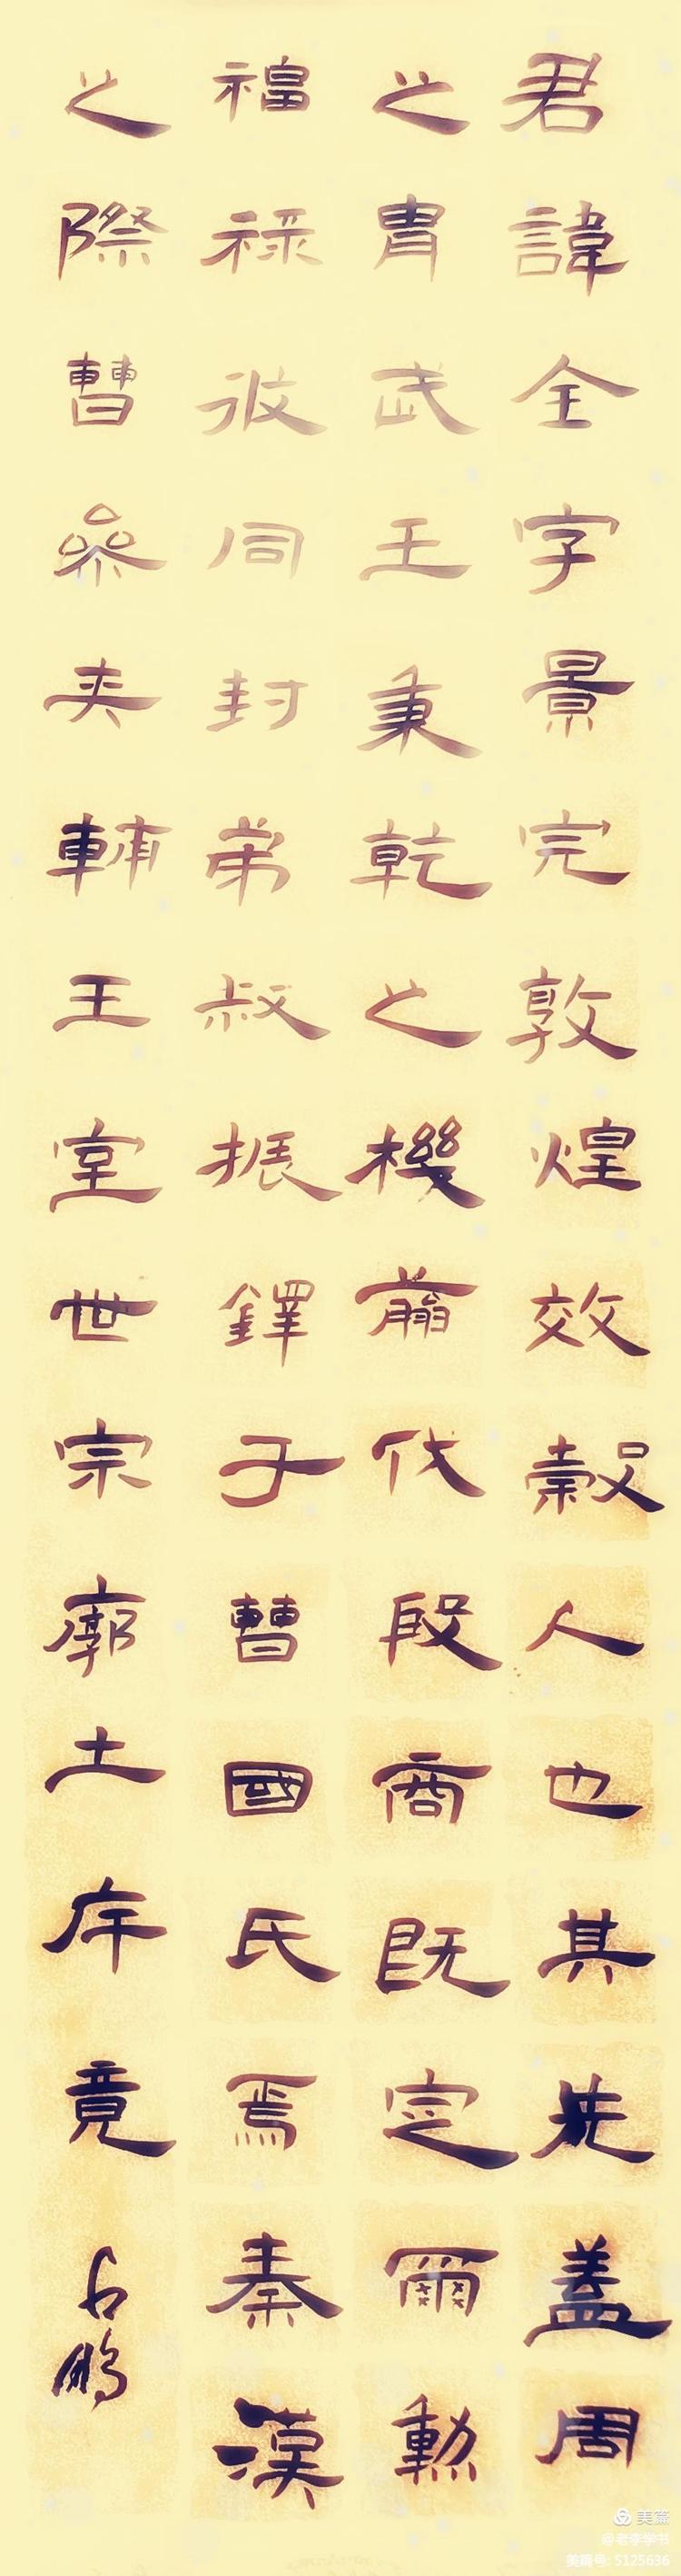 君諱全字景完敦煌效穀人也其先蓋周
之胄武王秉乾之機翦伐殷商既定爾勳
福祿攸同封弟叔振鐸于曹國氏焉秦漢
之際曹參夾輔王室世宗廓土斥竟
占鵬
美篇
@老李学书
美篇号: 5125636